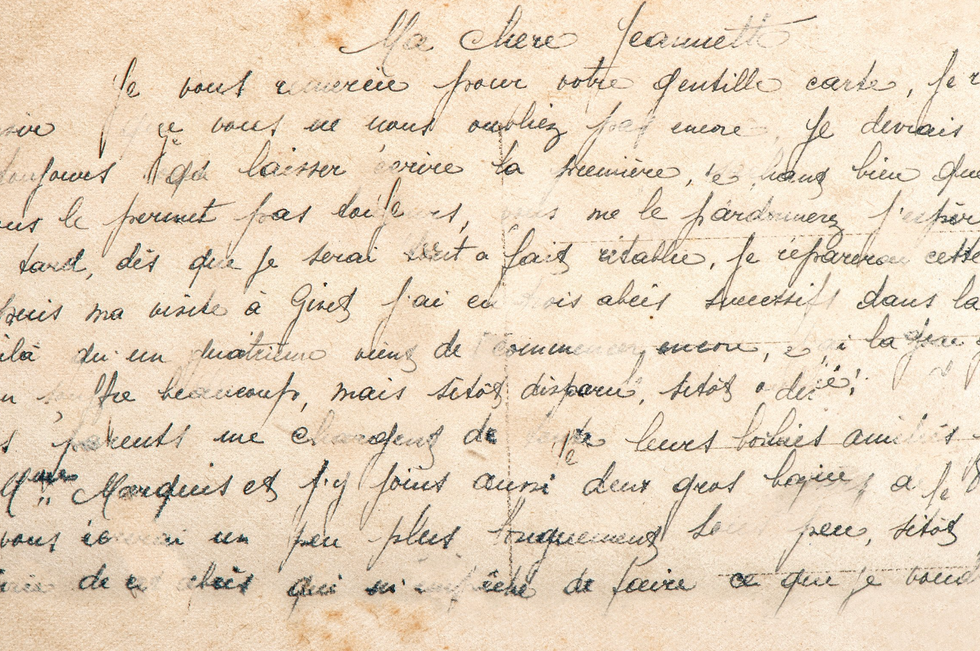 Ma chère Jeannette
Je vous remercie pour votre gentille carte, je
que vous ne nous oubliez pas encore. Je devrais
toujours laisser écrire la première, bien que
le permet pas toujours, vous me le pardonnerez j'espèr
tard, dès que je serai tout à fait rétablie, je réparerai cette
ma visite à Givet j'ai eu trois abcès successifs dans la
qu'un quatrième vient de commencer encore, la
souffre beaucoup, mais sitôt disparu, sitôt
parents me chargent de leurs bonnes amitiés
Marquis et j'y joins aussi deux gros
vous un peu plus longuement peu, sitôt
de ces abcès qui m'empêche de faire ce que je voud